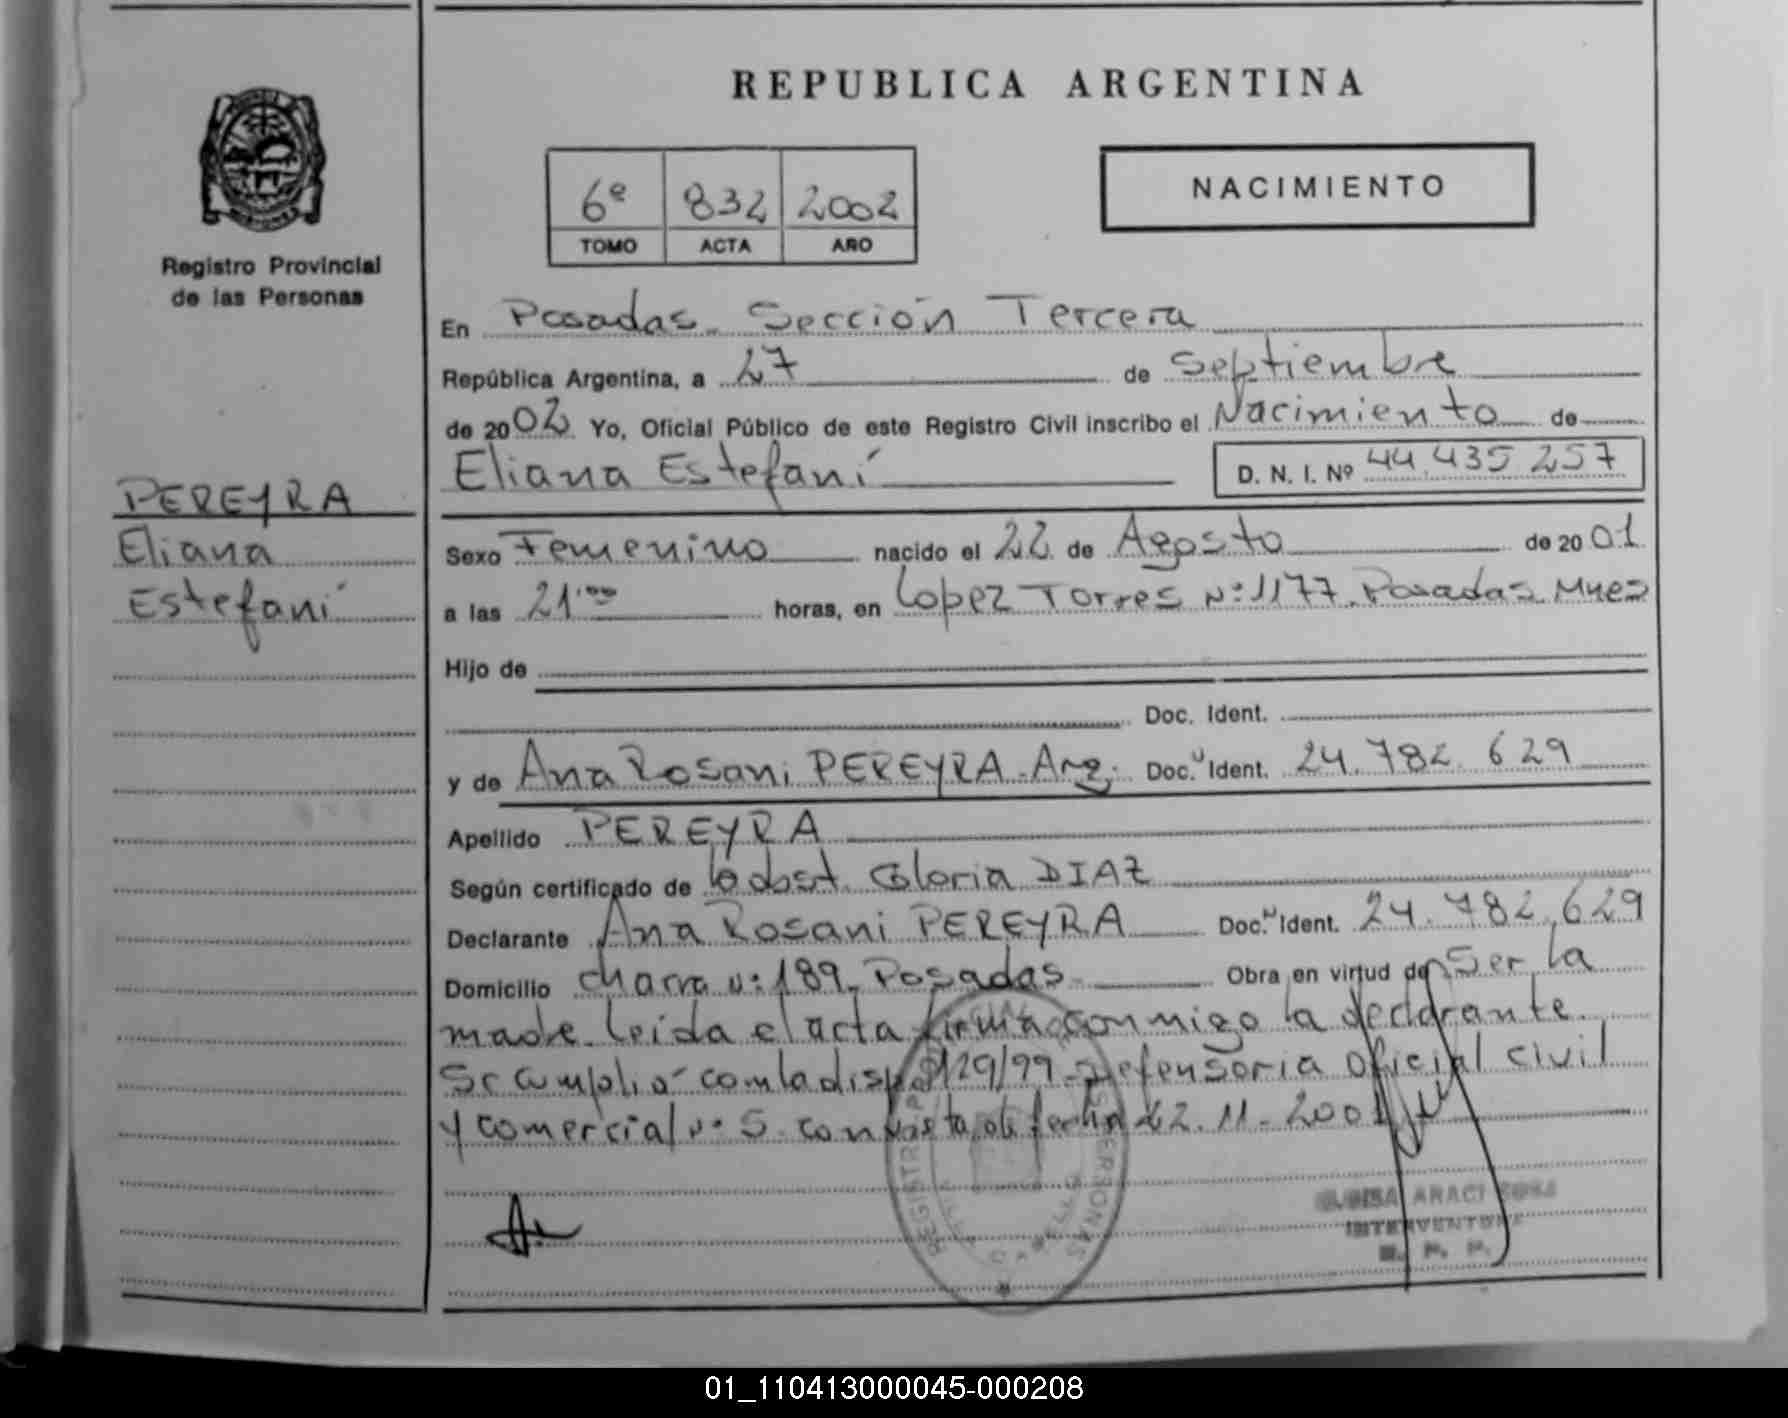 REPUBLICA ARGENTINA
6º 832 2002
TOMO ACTA AÑO
NACIMIENTO
Registro Provincial
de las Personas
PEREYRA
Eliana
Estefaní
En Posadas. Sección Tercera
República Argentina, a 27 de Septiembre
de 2002 Yo, Oficial Público de este Registro Civil inscribo el Nacimiento de
Eliana Estefaní D. N. I. Nº 44.435 257
Sexo Femenino nacido el 22 de Agosto de 2001
a las 21:00 horas, en Lopez Torres Nº:1177. Posadas Mnes
Hijo de
Doc. Ident.
y de Ana Rosani PEREYRA. Arg. Doc. Ident. 24.782.629
Apellido PEREYRA
Según certificado de obst. Gloria DIAZ
Declarante Ana Rosani PEREYRA Doc. Ident. 24.782.629
Domicilio Chacra Nº:189. Posadas Obra en virtud de Ser la
madre. Leída el acta firma conmigo la declarante.
Se cumplió con la disp. 129/99. Defensoria Oficial Civil
y comercial Nº 5. con de fecha 22.11.2001
ARACI SOSA
INTERVENTORA
R. P. P.
REGISTR PERSONAS
CABELLO
01_110413000045-000208